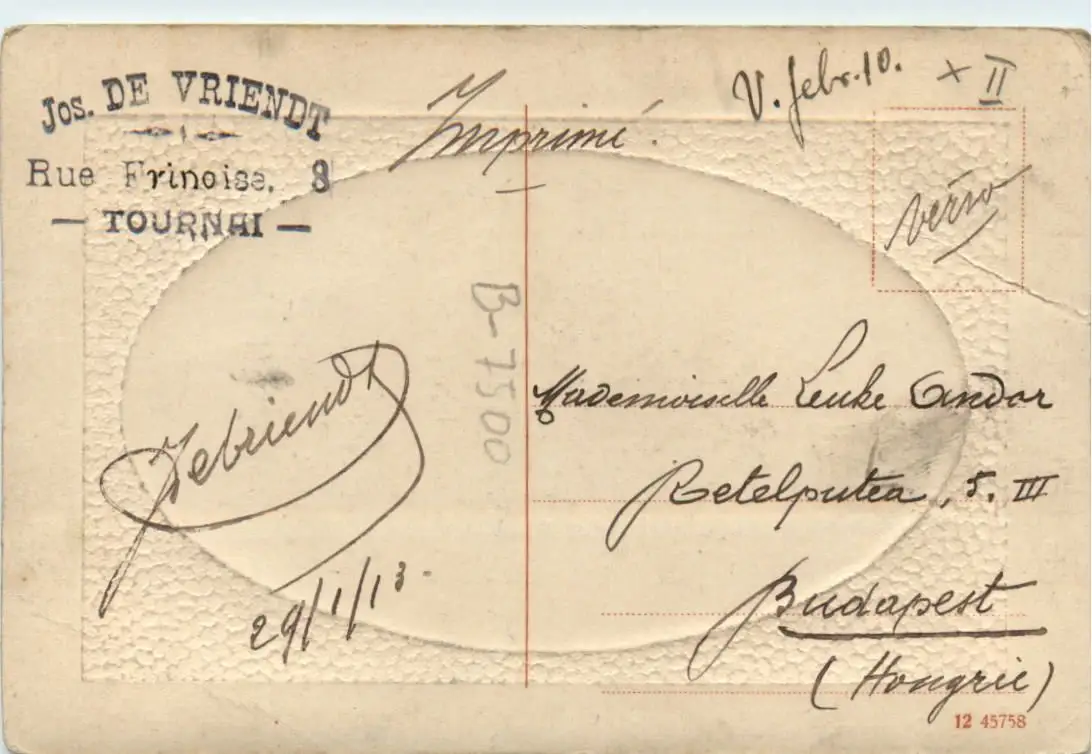 Jos. DE VRIENDT
Rue Frinoise, 8
— TOURNAI —
Imprimé.
V. febr. 10. + II
verso
B-7500
Devriendt
29/1/13-
Mademoiselle Lenke Andor
Retelputca, 5. III
Budapest
(Hongrie)
12 45758